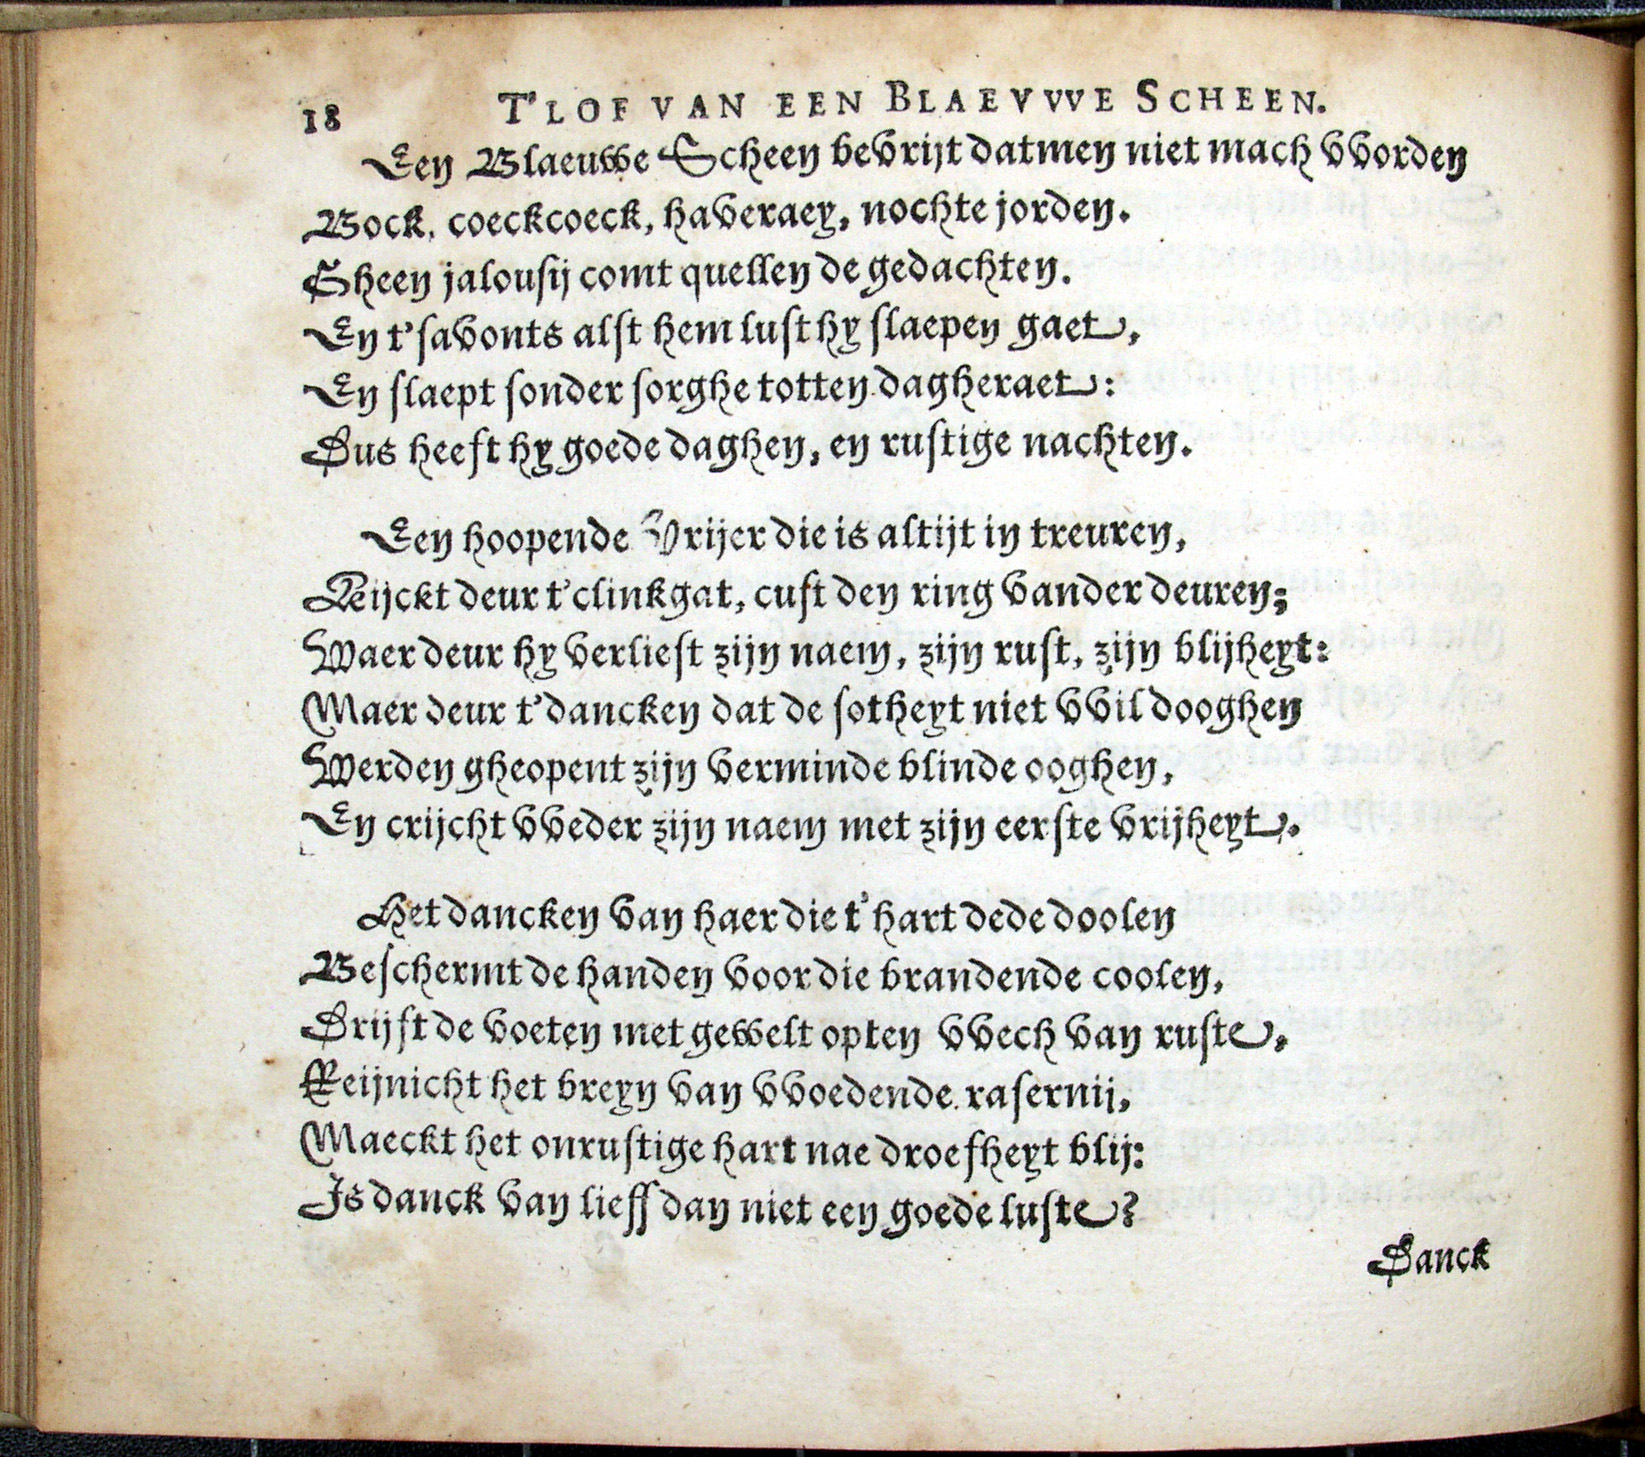 18 T'LOF VAN EEN BLAEVVVE SCHEEN.
Een Blaeuwe Scheen bevrijt datmen niet mach vvorden
Bock, coeckcoeck, haveraey, nochte jorden.
Gheen jalousij comt quellen de gedachten.
En t'savonts alst hem lust hy slaepen gaet,
En slaept sonder sorghe totten dagheraet:
Dus heeft hy goede daghen, en rustige nachten.
Een hoopende Vrijer die is altijt in treuren,
Keijckt deur t'clinkgat, cust den ring vander deuren;
Waer deur hy verliest zijn naem, zijn rust, zijn blijheyt:
Maer deur t'dancken dat de sotheyt niet vvil dooghen
Werden gheopent zijn verminde blinde ooghen,
En crijcht vveder zijn naem met zijn eerste vrijheyt.
Het dancken van haer die t'hart dede doolen
Beschermt de handen voor die brandende coolen,
Drijft de voeten met gewelt opten vvech van ruste,
Reijnicht het breyn van vvoedende rasernij,
Maeckt het onrustige hart nae droefheyt blij:
Is danck van lieff dan niet een goede luste?
Danck